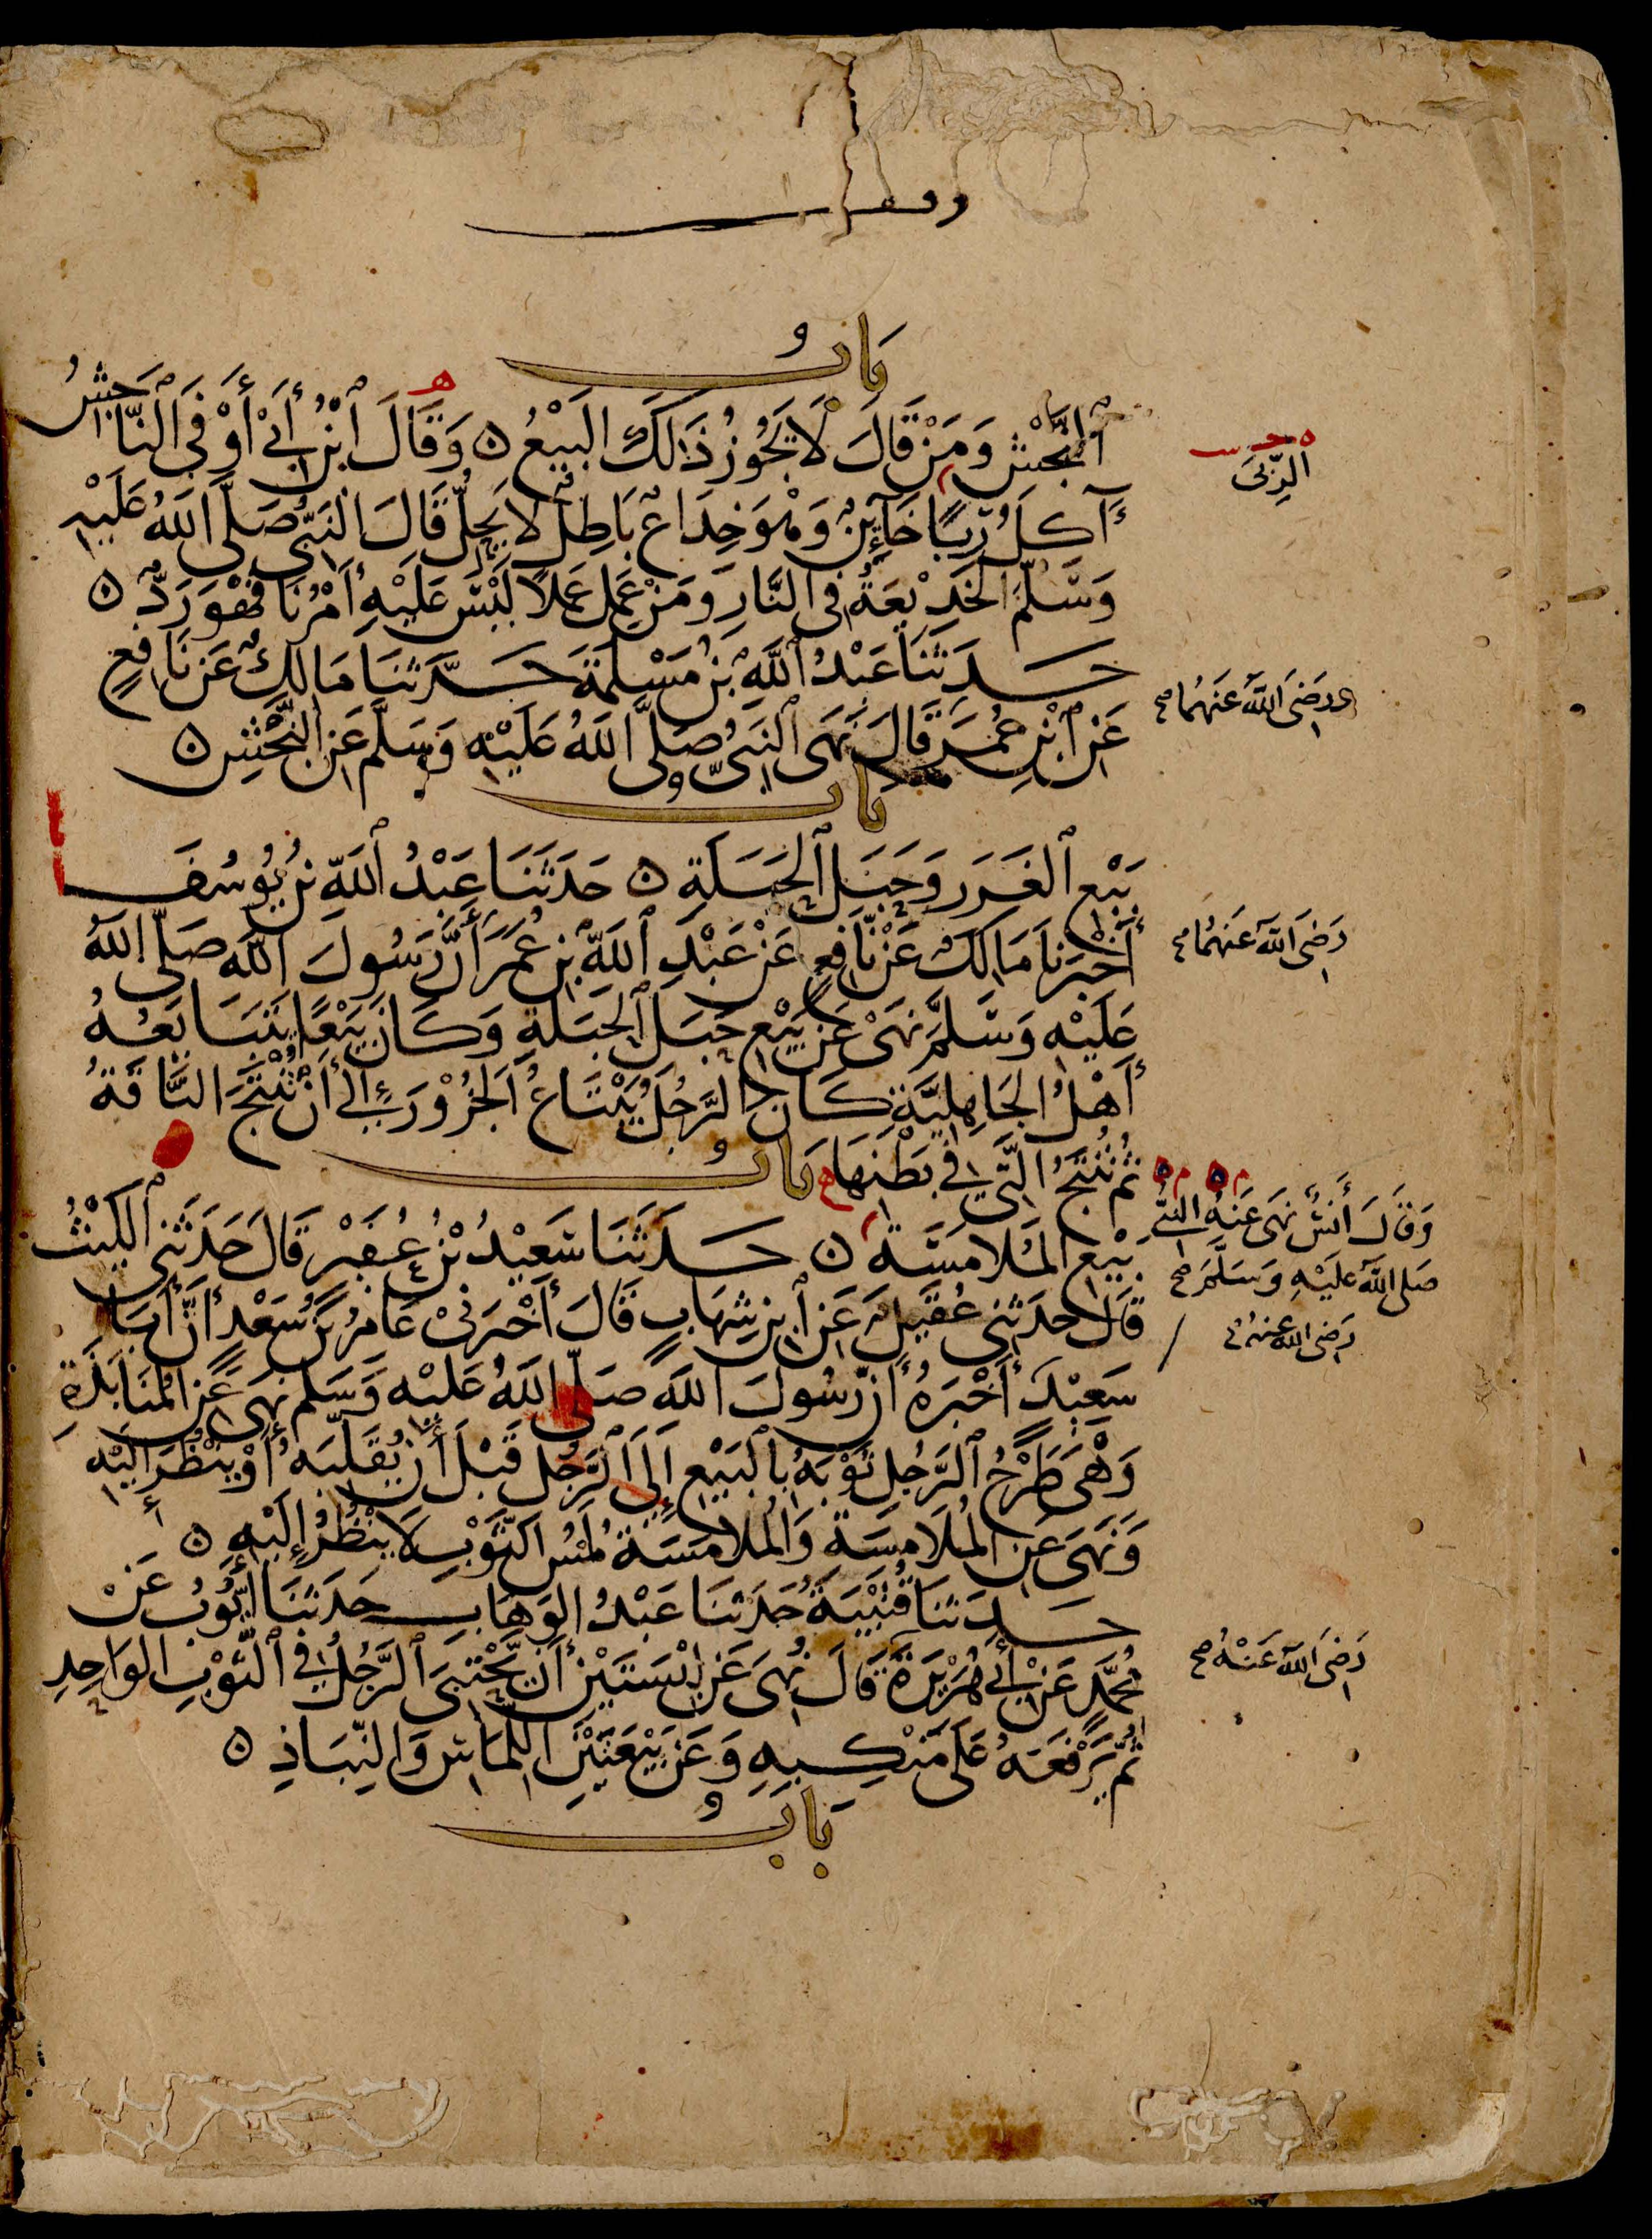 وقف
باب
النجش ومن قال لا يجوز ذلك البيع ٥ وقال ابن أبي أوفى الناجش
آكل ربا خائن وهو خداع باطل لا يحل قال النبي صلى الله عليه
وسلم الخديعة في النار ومن عمل عملا ليس عليه أمرنا فهو رد ٥
حدثنا عبد الله بن مسلمة حدثنا مالك عن نافع
عن ابن عمر قال نهى النبي صلى الله عليه وسلم عن النجش ٥
باب
بيع الغرر وحبل الحبلة ٥ حدثنا عبد الله بن يوسف
أخبرنا مالك عن نافع عن عبد الله بن عمر أن رسول الله صلى الله
عليه وسلم نهى عن بيع حبل الحبلة وكان بيعا يتبايعه
أهل الجاهلية كان الرجل يبتاع الجزور إلى أن تنتج الناقة
ثم تنتج التي في بطنها باب
بيع الملامسة ٥ حدثنا سعيد بن عفير قال حدثني الليث
قال حدثني عقيل عن ابن شهاب قال أخبرني عامر بن سعد أن أبا
سعيد أخبره أن رسول الله صلى الله عليه وسلم نهى عن المنابذة
وهي طرح الرجل ثوبه بالبيع إلى الرجل قبل أن يقلبه أو ينظر إليه
ونهى عن الملامسة والملامسة لمس الثوب لا ينظر إليه ٥
حدثنا قتيبة حدثنا عبد الوهاب حدثنا أيوب عن
محمد عن أبي هريرة قال نهي عن لبستين أن يحتبي الرجل في الثوب الواحد
ثم يرفعه على منكبه وعن بيعتين اللماس والنباذ ٥
باب
الربى
رضي الله عنهما صح
رضي الله عنهما صح
وقال أنس نهى عنه النبي
صلى الله عليه وسلم صح
رضي الله عنه
رضي الله عنه صح